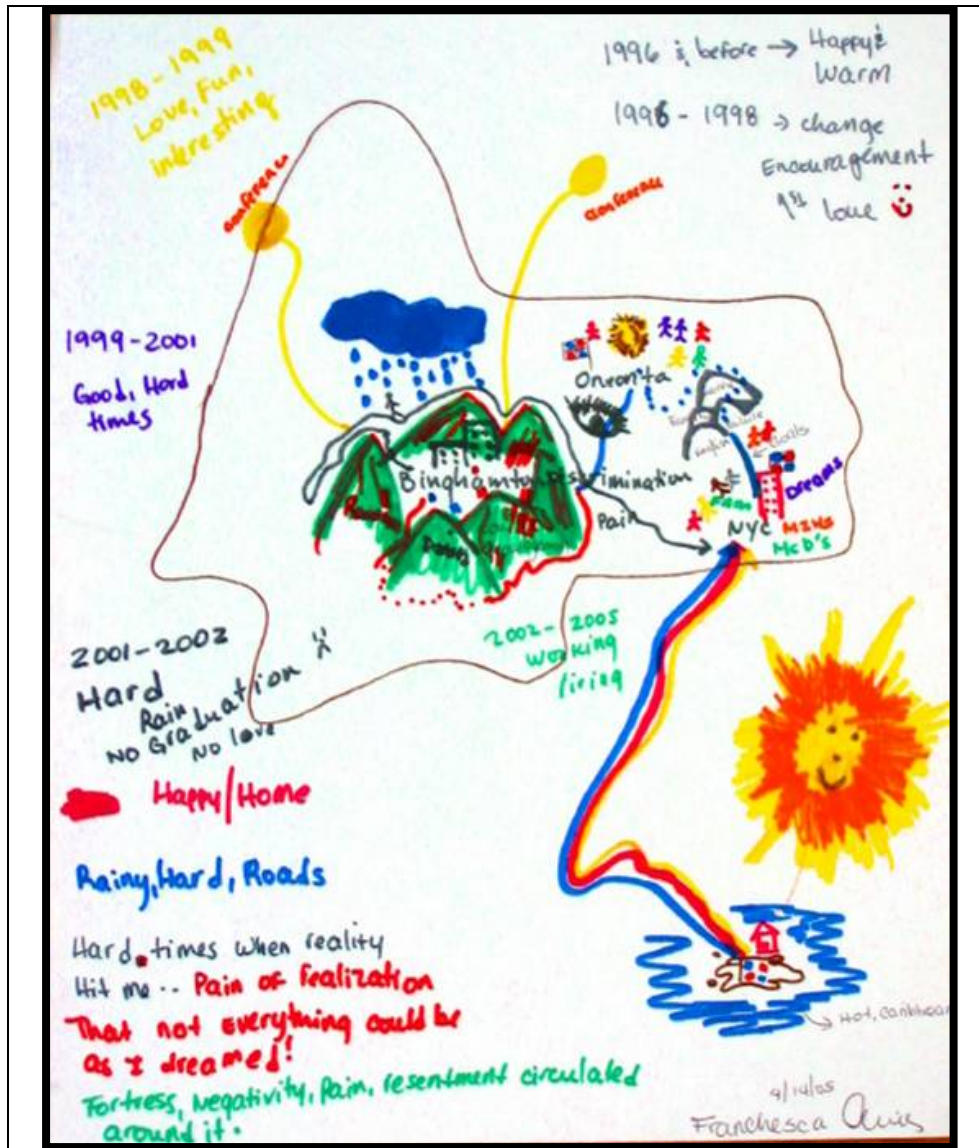 1998-1999
Love, Fun,
interesting
1996 & before → Happy &
Warm
1996 - 1998 → change
Encouragement
1st love
conference
conference
1999-2001
Good, Hard
times
Oneonta
Binghamton
Discrimination
Pain
Goals
Dreams
Fam
NYC
McD's
2001-2002
Hard
Rain
NO Graduation
No love
2002-2005
Working
Happy/Home
Rainy, Hard, Roads
Hard times when reality
Hit me.. Pain of Realization
That not everything could be
as I dreamed!
Fortress, Negativity, Pain, resentment circulated
around it.
Hot, Caribbean
9/14/05
Franchesca